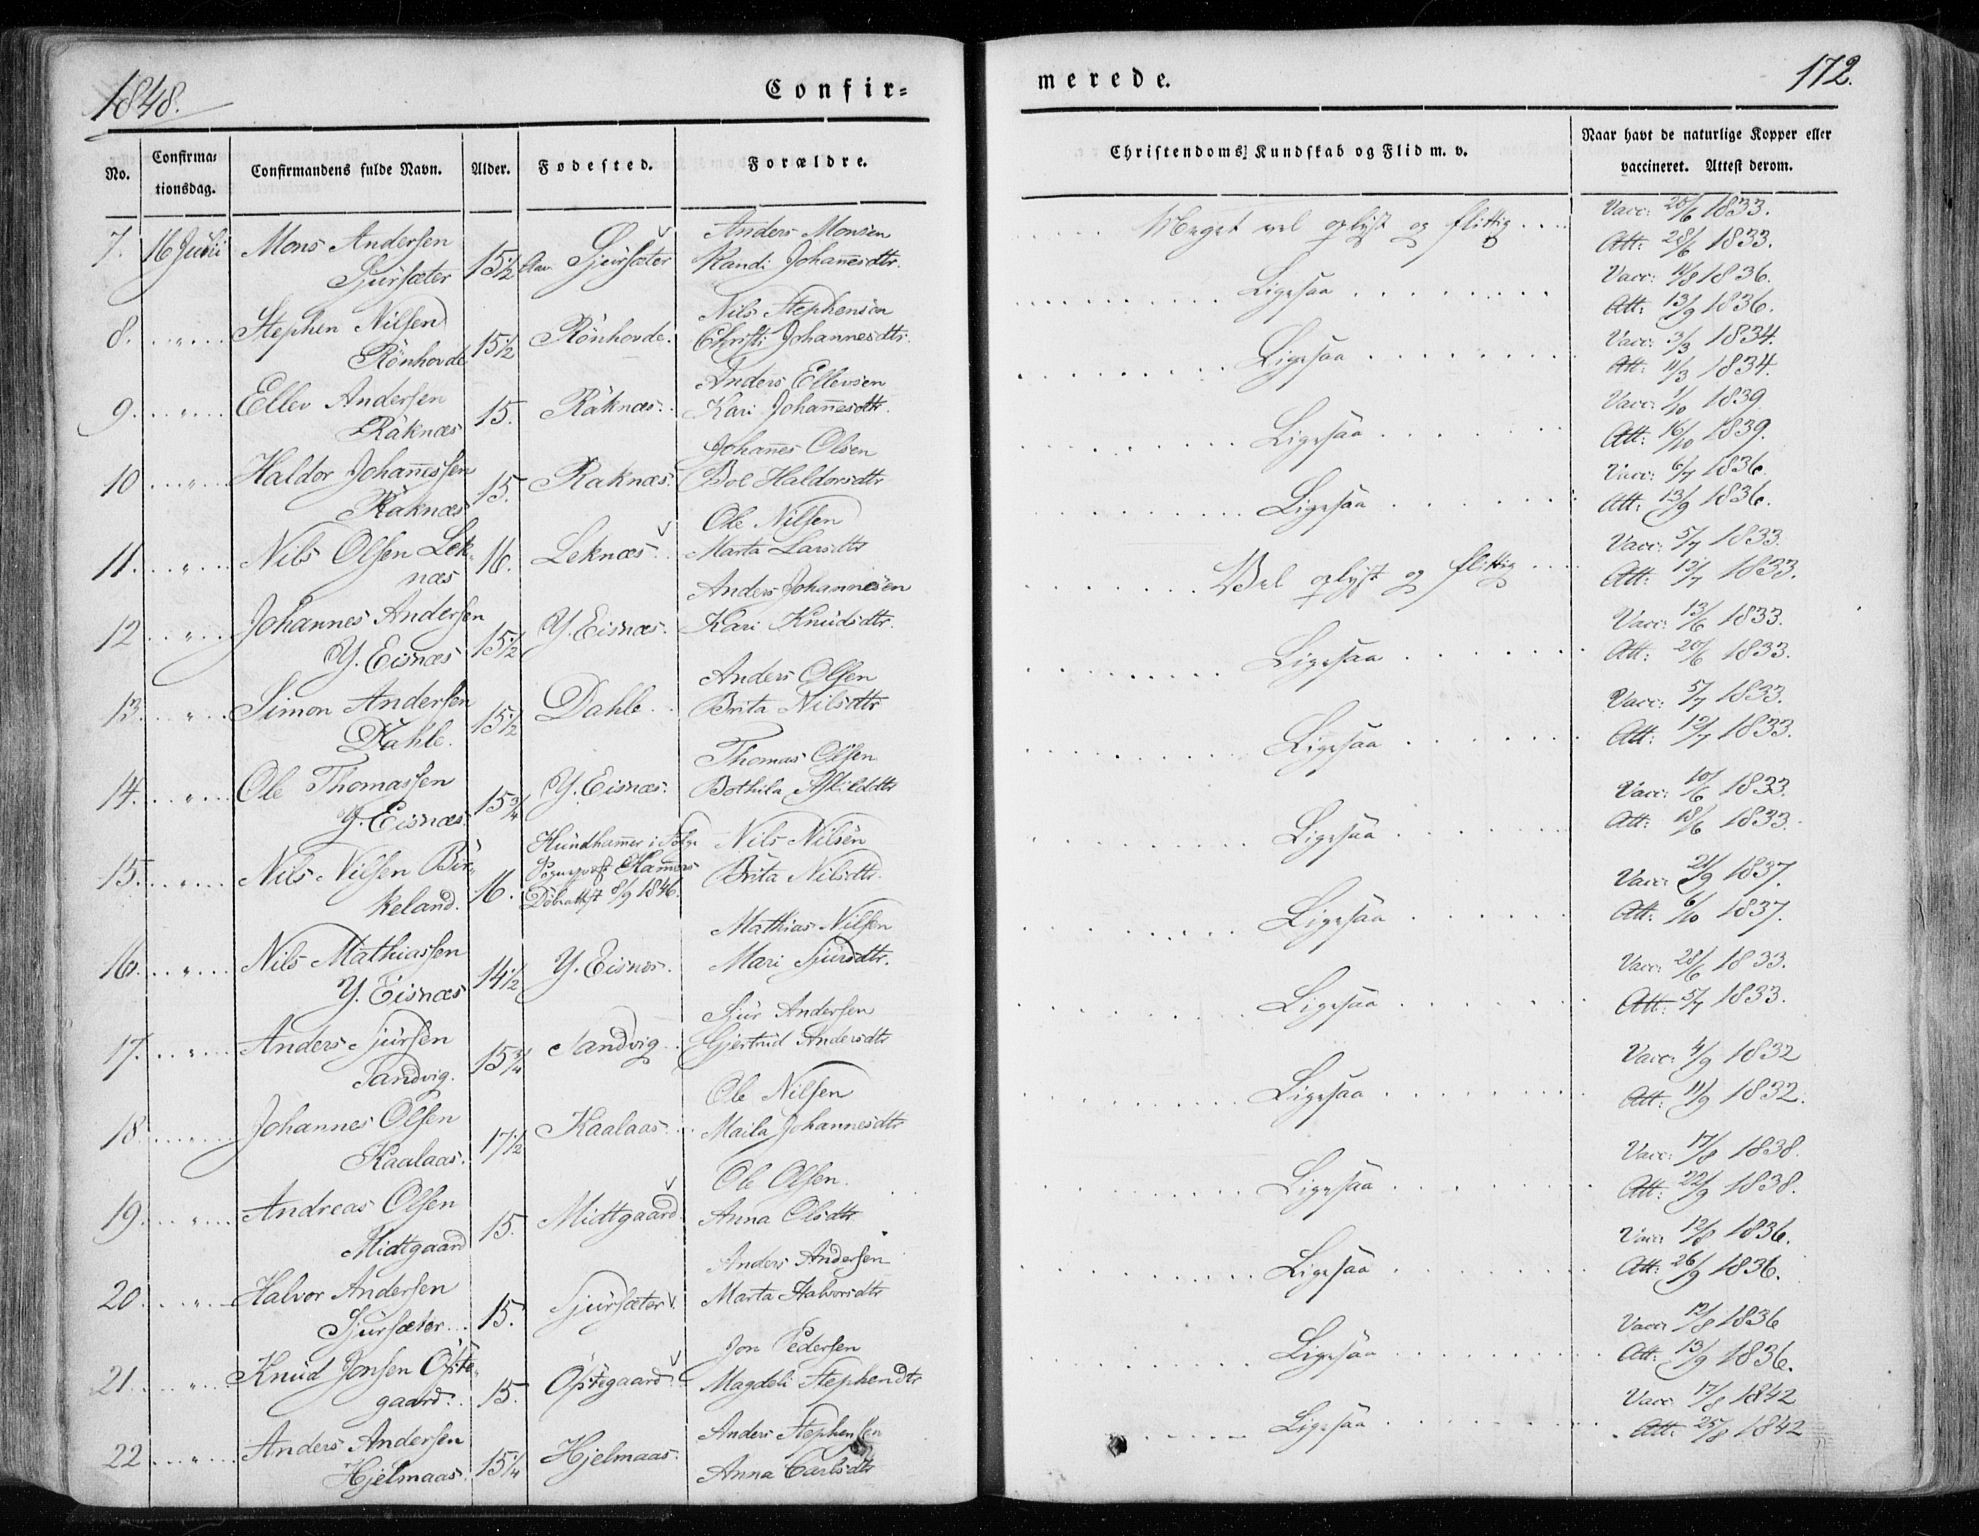 1848.
Confir=
No.
Confirma-
tionsdag.
Confirmandens fulde Navn.
Alder.
Fødested.
Forældre.
7. 16 Juli Mons Andersen
Sjursæter 15 1/2 Sjursæter
Anders Monsen
Randi Johannesdtr.
8. " Stephen Nilsen
Rönhovde 15 1/2 Rönhovde.
Nils Stephensen
Christi Johannesdtr.
9. " Ellev Andersen
Räknæs 15. Räknæs.
Anders Ellevsen
Kari Johannesdtr.
10 " Haldor Johannessen
Räknæs 15. Raknæs.
Johannes Olsen
Boe Haldorsdtr
11. " Nils Olsen Lek-
næs 16. Leknæs.
Ole Nilsen
Marta Larsdtr
12 " Johannes Andersen
Y. Eisnæs 15 1/2 Y. Eisnæs.
Anders Johannesen
Kari Knudsdtr.
13. " Simon Andersen
Dahle. 15 1/2 Dahle.
Anders Olsen
Brita Nilsdtr
14. " Ole Thomassen
Y. Eisnæs. 15 3/4 Y. Eisnæs.
Thomas Olsen
Bothila
15. " Nils Nilsen Bir-
keland. 16. Hundhamer i
Hamers
8/9 1846.
Nils Nilsen
Brita Nilsdtr.
16. " Nils Mathiassen
Y. Eisnæs 14 1/2 Y. Eisnæs.
Mathias Nilsen
Mari Sjursdtr.
17. " Anders Sjursen
Sandvig. 15 3/4 Sandvig
Sjur Andersen
Gjertrud Andersdtr
18. " Johannes Olsen
Kaalaas. 17 1/2 Kaalaas.
Ole Nilsen
Maila Johannesdtr
19. " Andreas Olsen
Midtgaard 15. Midtgaard
Ole Olsen.
Anna Olsdtr.
20. " Halvor Andersen
Sjursæter 15. Sjursæter
Anders Andersen
Marta Halvorsdtr
21. " Knud Jonsen Öste-
gaard. 15. Östegaard
Jon Pedersen
Magdeli Stephendtr
22 " Anders Andersen
Hjelmaas. 15 1/4 Hjelmaas.
Anders Stephensen
Anna Carlsdtr
merede.
172.
Christendoms Kundskab og Flid m. v.
Naar havt de naturlige Kopper eller
vaccineret. Attest derom.
Meget vel oplyst og flittig
Vacc: 20/6 1833.
Att: 28/6 1833.
Ligesaa
Vacc: 11/8 1836.
Att: 13/9 1836.
Ligesaa
Vacc: 3/3 1834.
Att: 11/3 1834.
Ligesaa
Vacc: 1/10 1839
Att: 16/10 1839.
Ligesaa
Vacc: 6/7 1836.
Att: 13/9 1836.
Vel oplyst og flittig
Vacc: 5/7 1833.
Att: 13/7 1833.
Ligesaa
Vacc: 13/6 1833.
Att: 20/6 1833.
Ligesaa
Vacc: 5/7 1833.
Att: 12/7 1833.
Ligesaa
Vacc: 10/6 1833.
Att: 18/6 1833.
Ligesaa
Vacc: 21/9 1837.
Att: 6/10 1837.
Ligesaa
Vacc: 28/6 1833.
Att: 5/7 1833.
Ligesaa
Vacc: 4/9 1832
Att: 11/9 1832.
Ligesaa
Vacc: 17/8 1838.
Att: 22/9 1838.
Ligesaa
Vacc: 12/8 1836.
Att: 26/9 1836.
Ligesaa
Vacc: 12/8 1836
Att: 13/9 1836.
Ligesaa
Vacc: 17/8 1842
Att: 25/8 1842